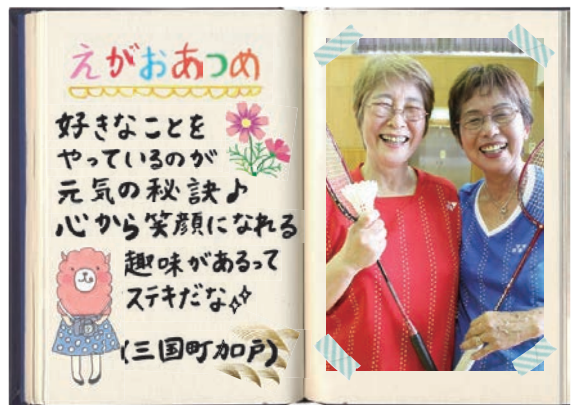 えがおあつめ
好きなことを
やっているのが
元気の秘訣♪
心から笑顔になれる
趣味があるって
ステキだな
(三国町加戸)